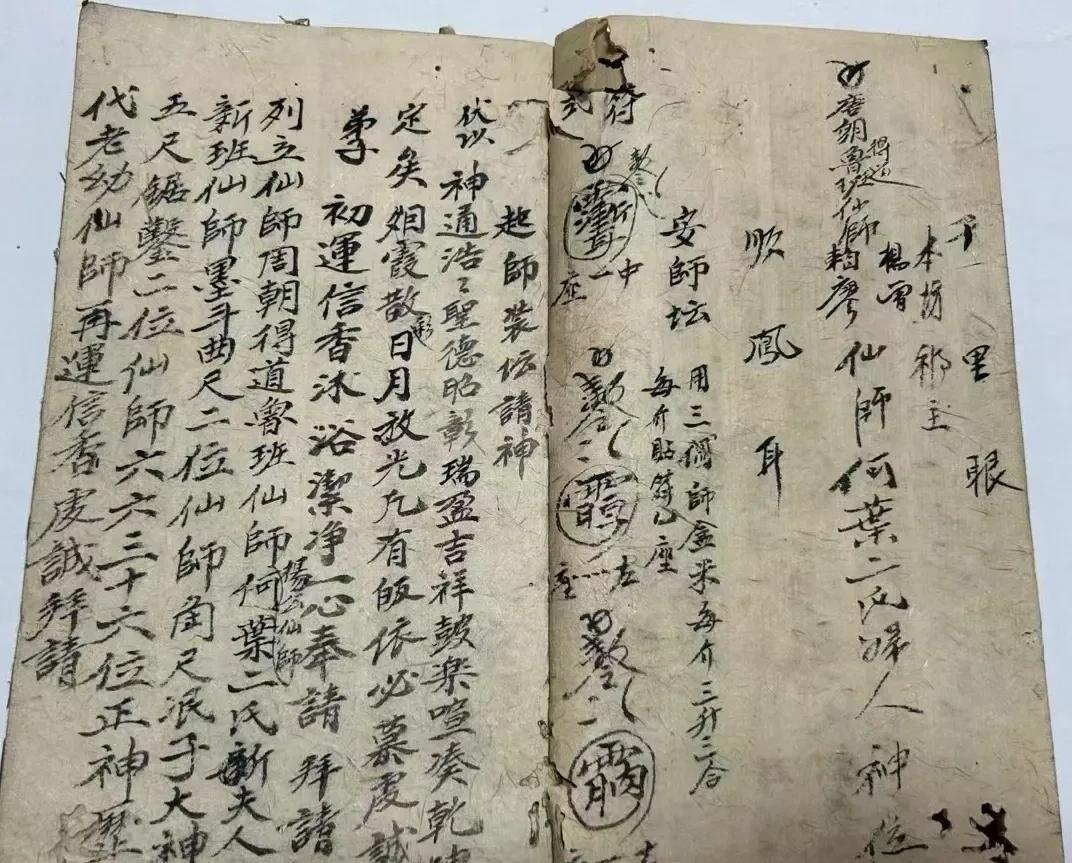 千里眼
本坊祁主
楊曾
唐朝魯班仙師 得道
賴廖仙師何葉二氏婦人神位
順風耳
安師坛
用三個師盒米每介三升三合
每介貼符乙座
符式
中一座
左一座
起師裝坛請神
伏以神通浩〻聖德昭彰瑞盈吉祥皷楽喧凑乾
定矣烟霞散彩日月放光凢有皈依必慕虔誠
弟子初運信香沐浴潔净一心奉請拜請
列立仙師周朝得道魯班仙師何葉二氏新夫人
楊公仙師
新班仙師墨斗曲尺二位仙師角尺泯子大神
五尺鋸鑿二位仙師六六三十六位正神歷
代老幼仙師再運信香虔誠拜請